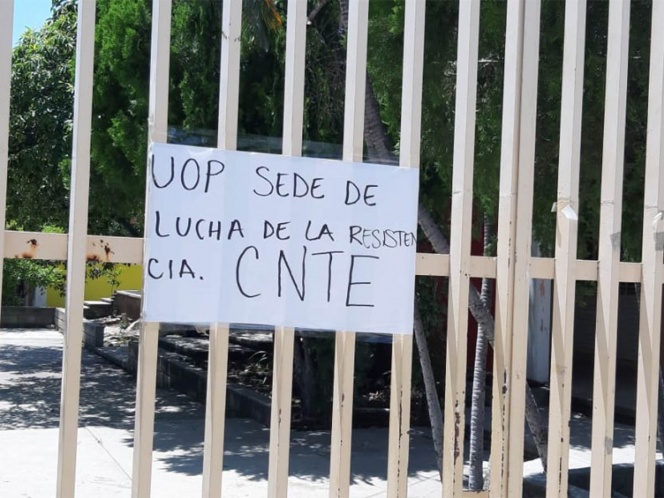 UOP SEDE DE
LUCHA DE LA RESISTEN
CIA. CNTE